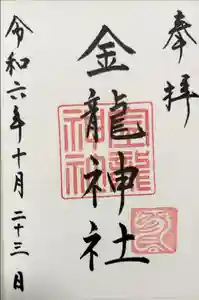 奉拝
金龍神社
令和六年十月二十三日